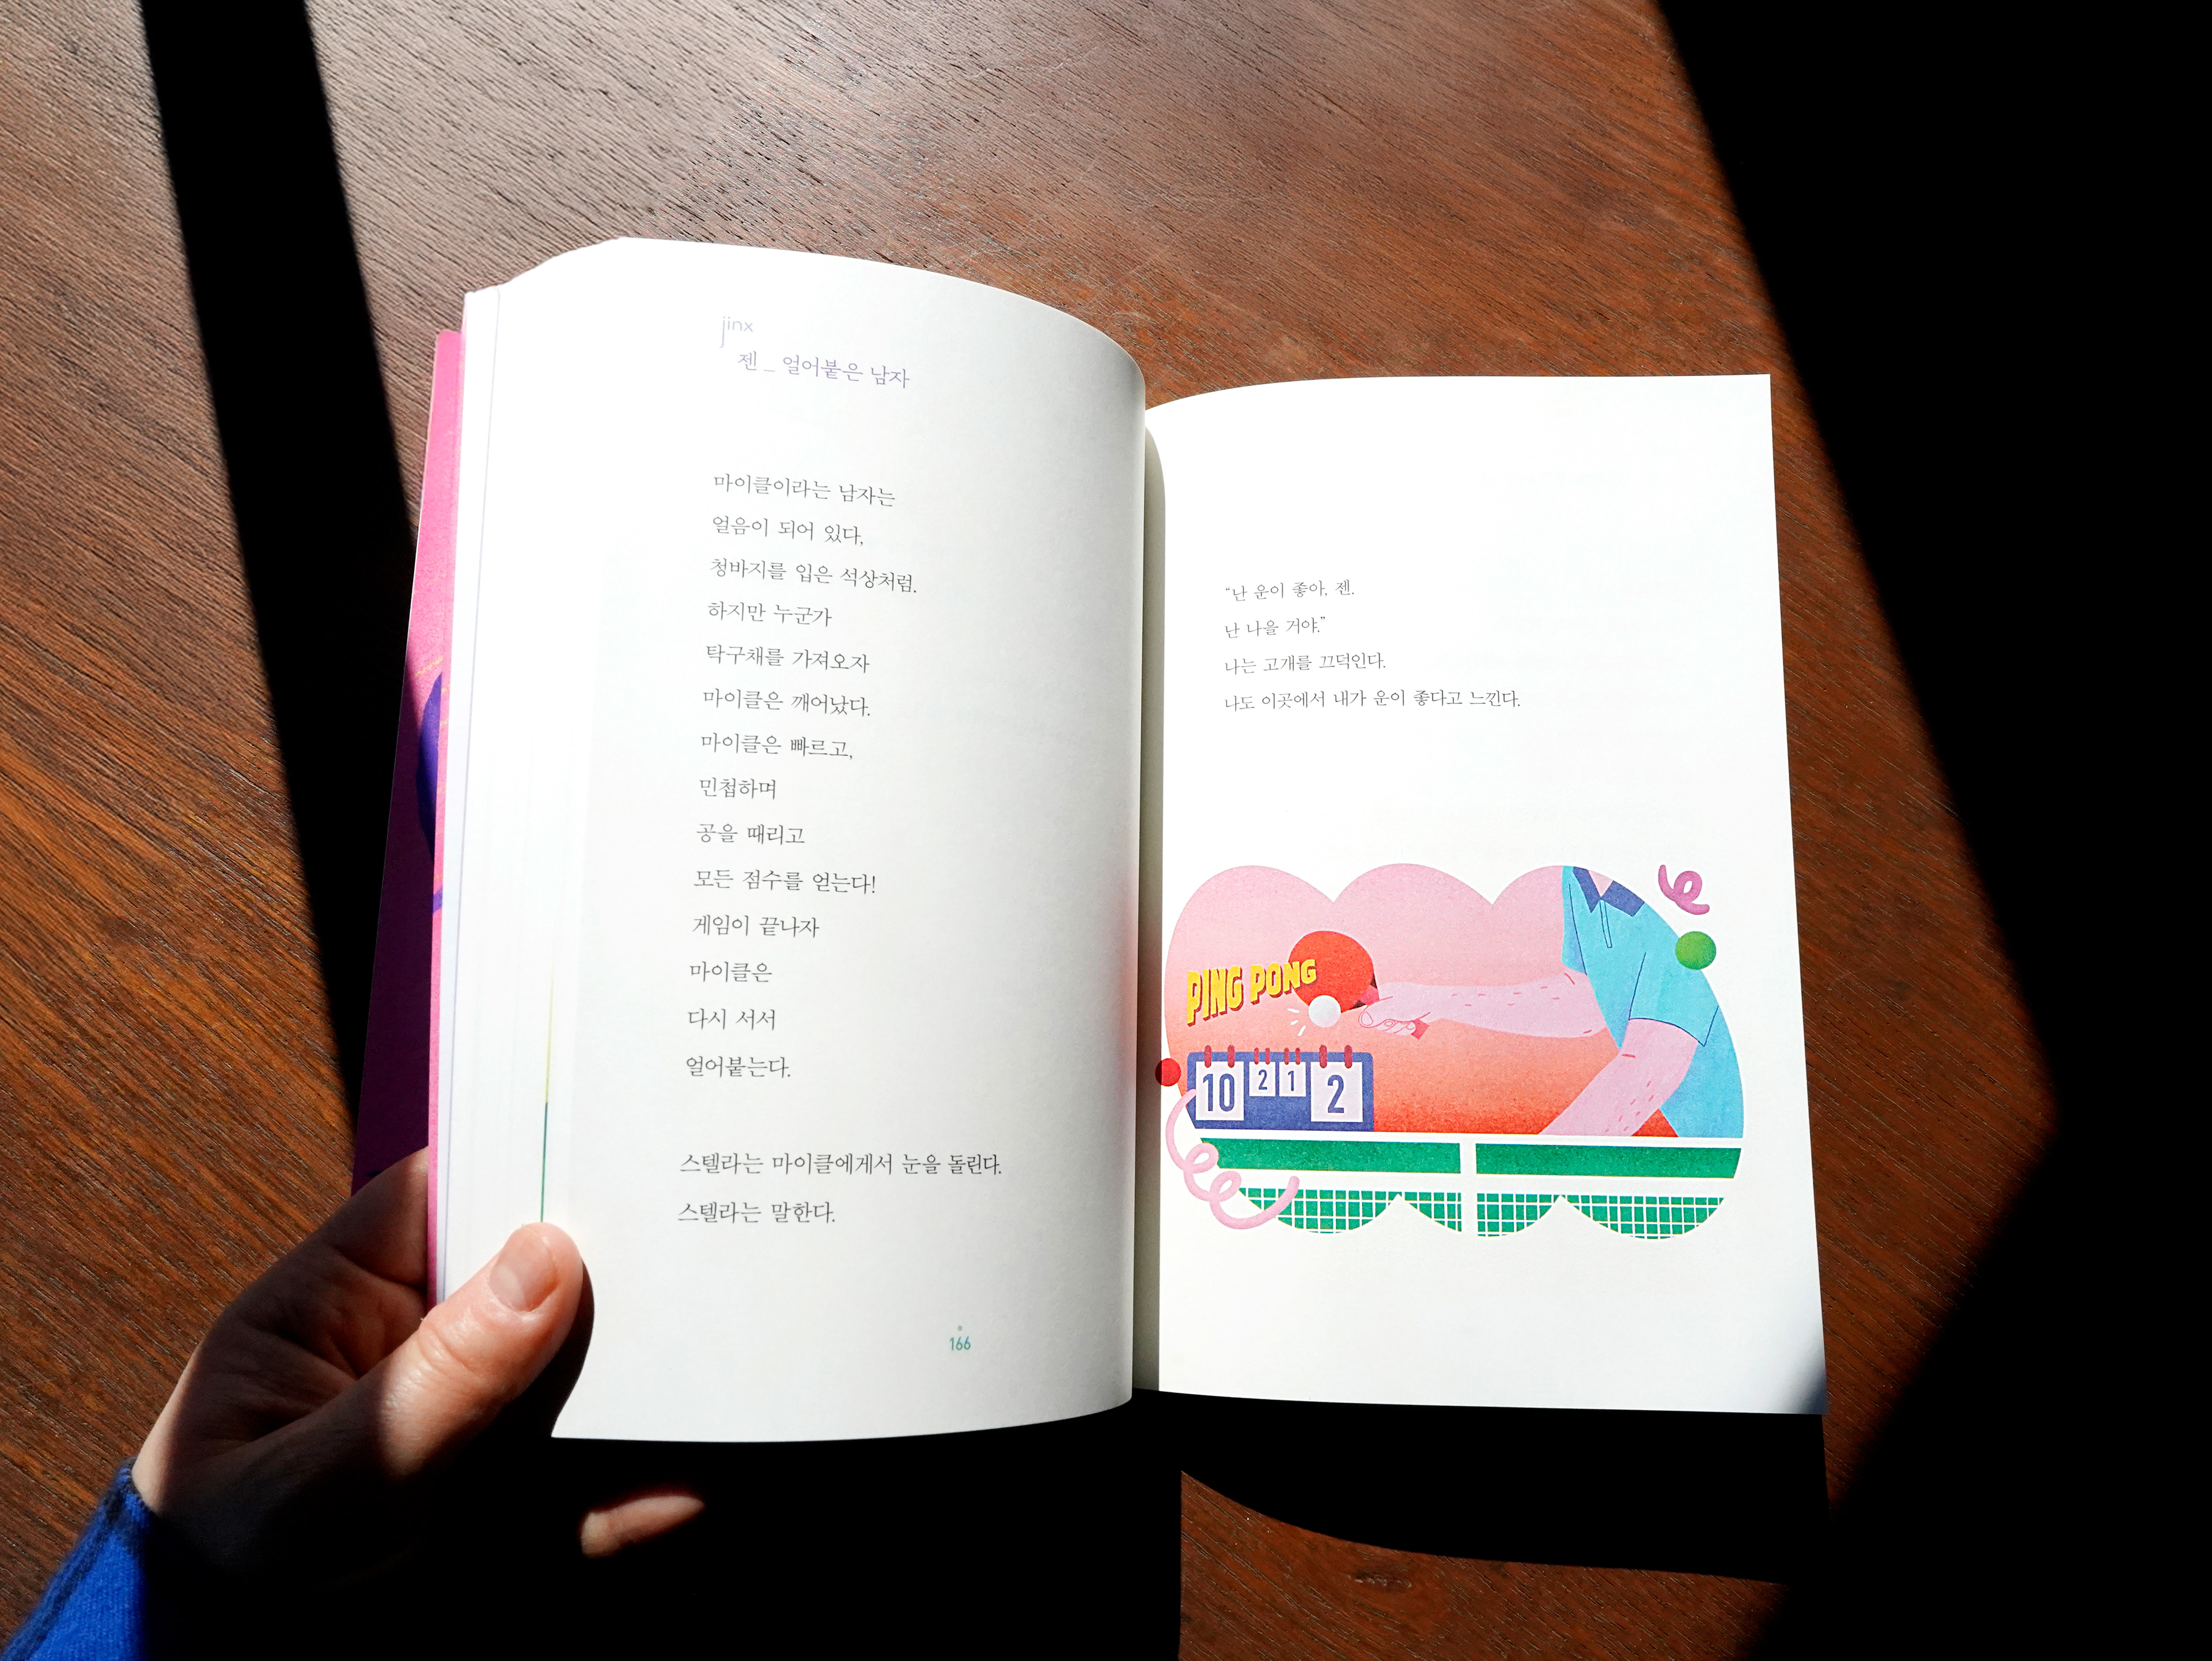 jinx
젠 _ 얼어붙은 남자
마이클이라는 남자는
얼음이 되어 있다,
청바지를 입은 석상처럼.
하지만 누군가
탁구채를 가져오자
마이클은 깨어났다.
마이클은 빠르고,
민첩하며
공을 때리고
모든 점수를 얻는다!
게임이 끝나자
마이클은
다시 서서
얼어붙는다.
스텔라는 마이클에게서 눈을 돌린다.
스텔라는 말한다.
166
“난 운이 좋아, 젠.
난 나을 거야.”
나는 고개를 끄덕인다.
나도 이곳에서 내가 운이 좋다고 느낀다.
PING PONG
10 2 1 2